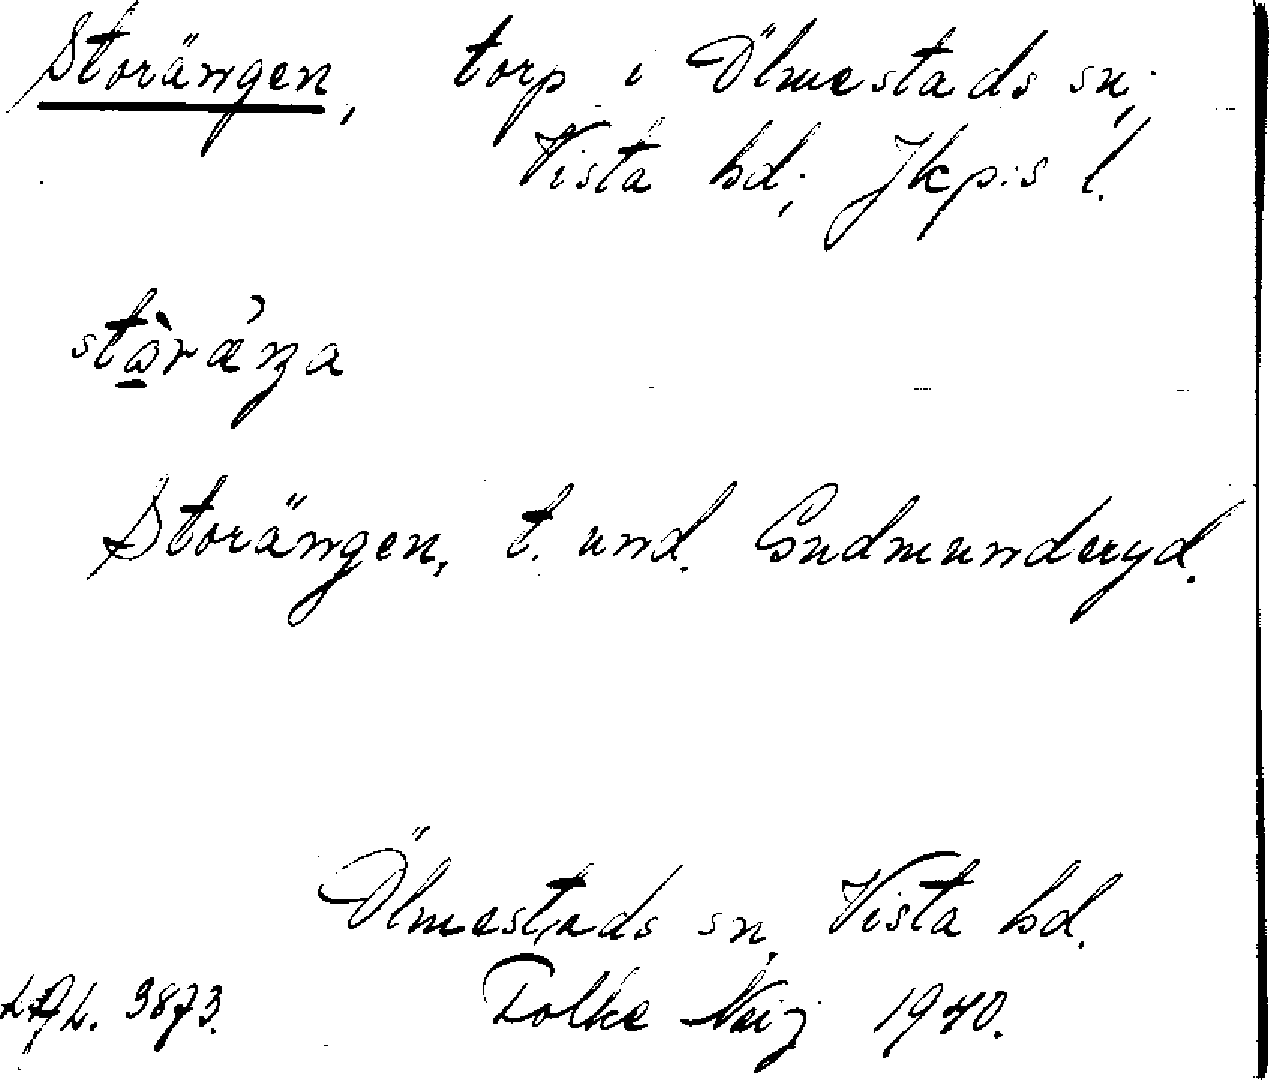 Storängen, torp i Ölmestads sn,
Vista hd, Jkp:s l.
Storängen, t. und. Gudmunderyd.
Ölmestads sn, Vista hd.
3873. Folke 1940.